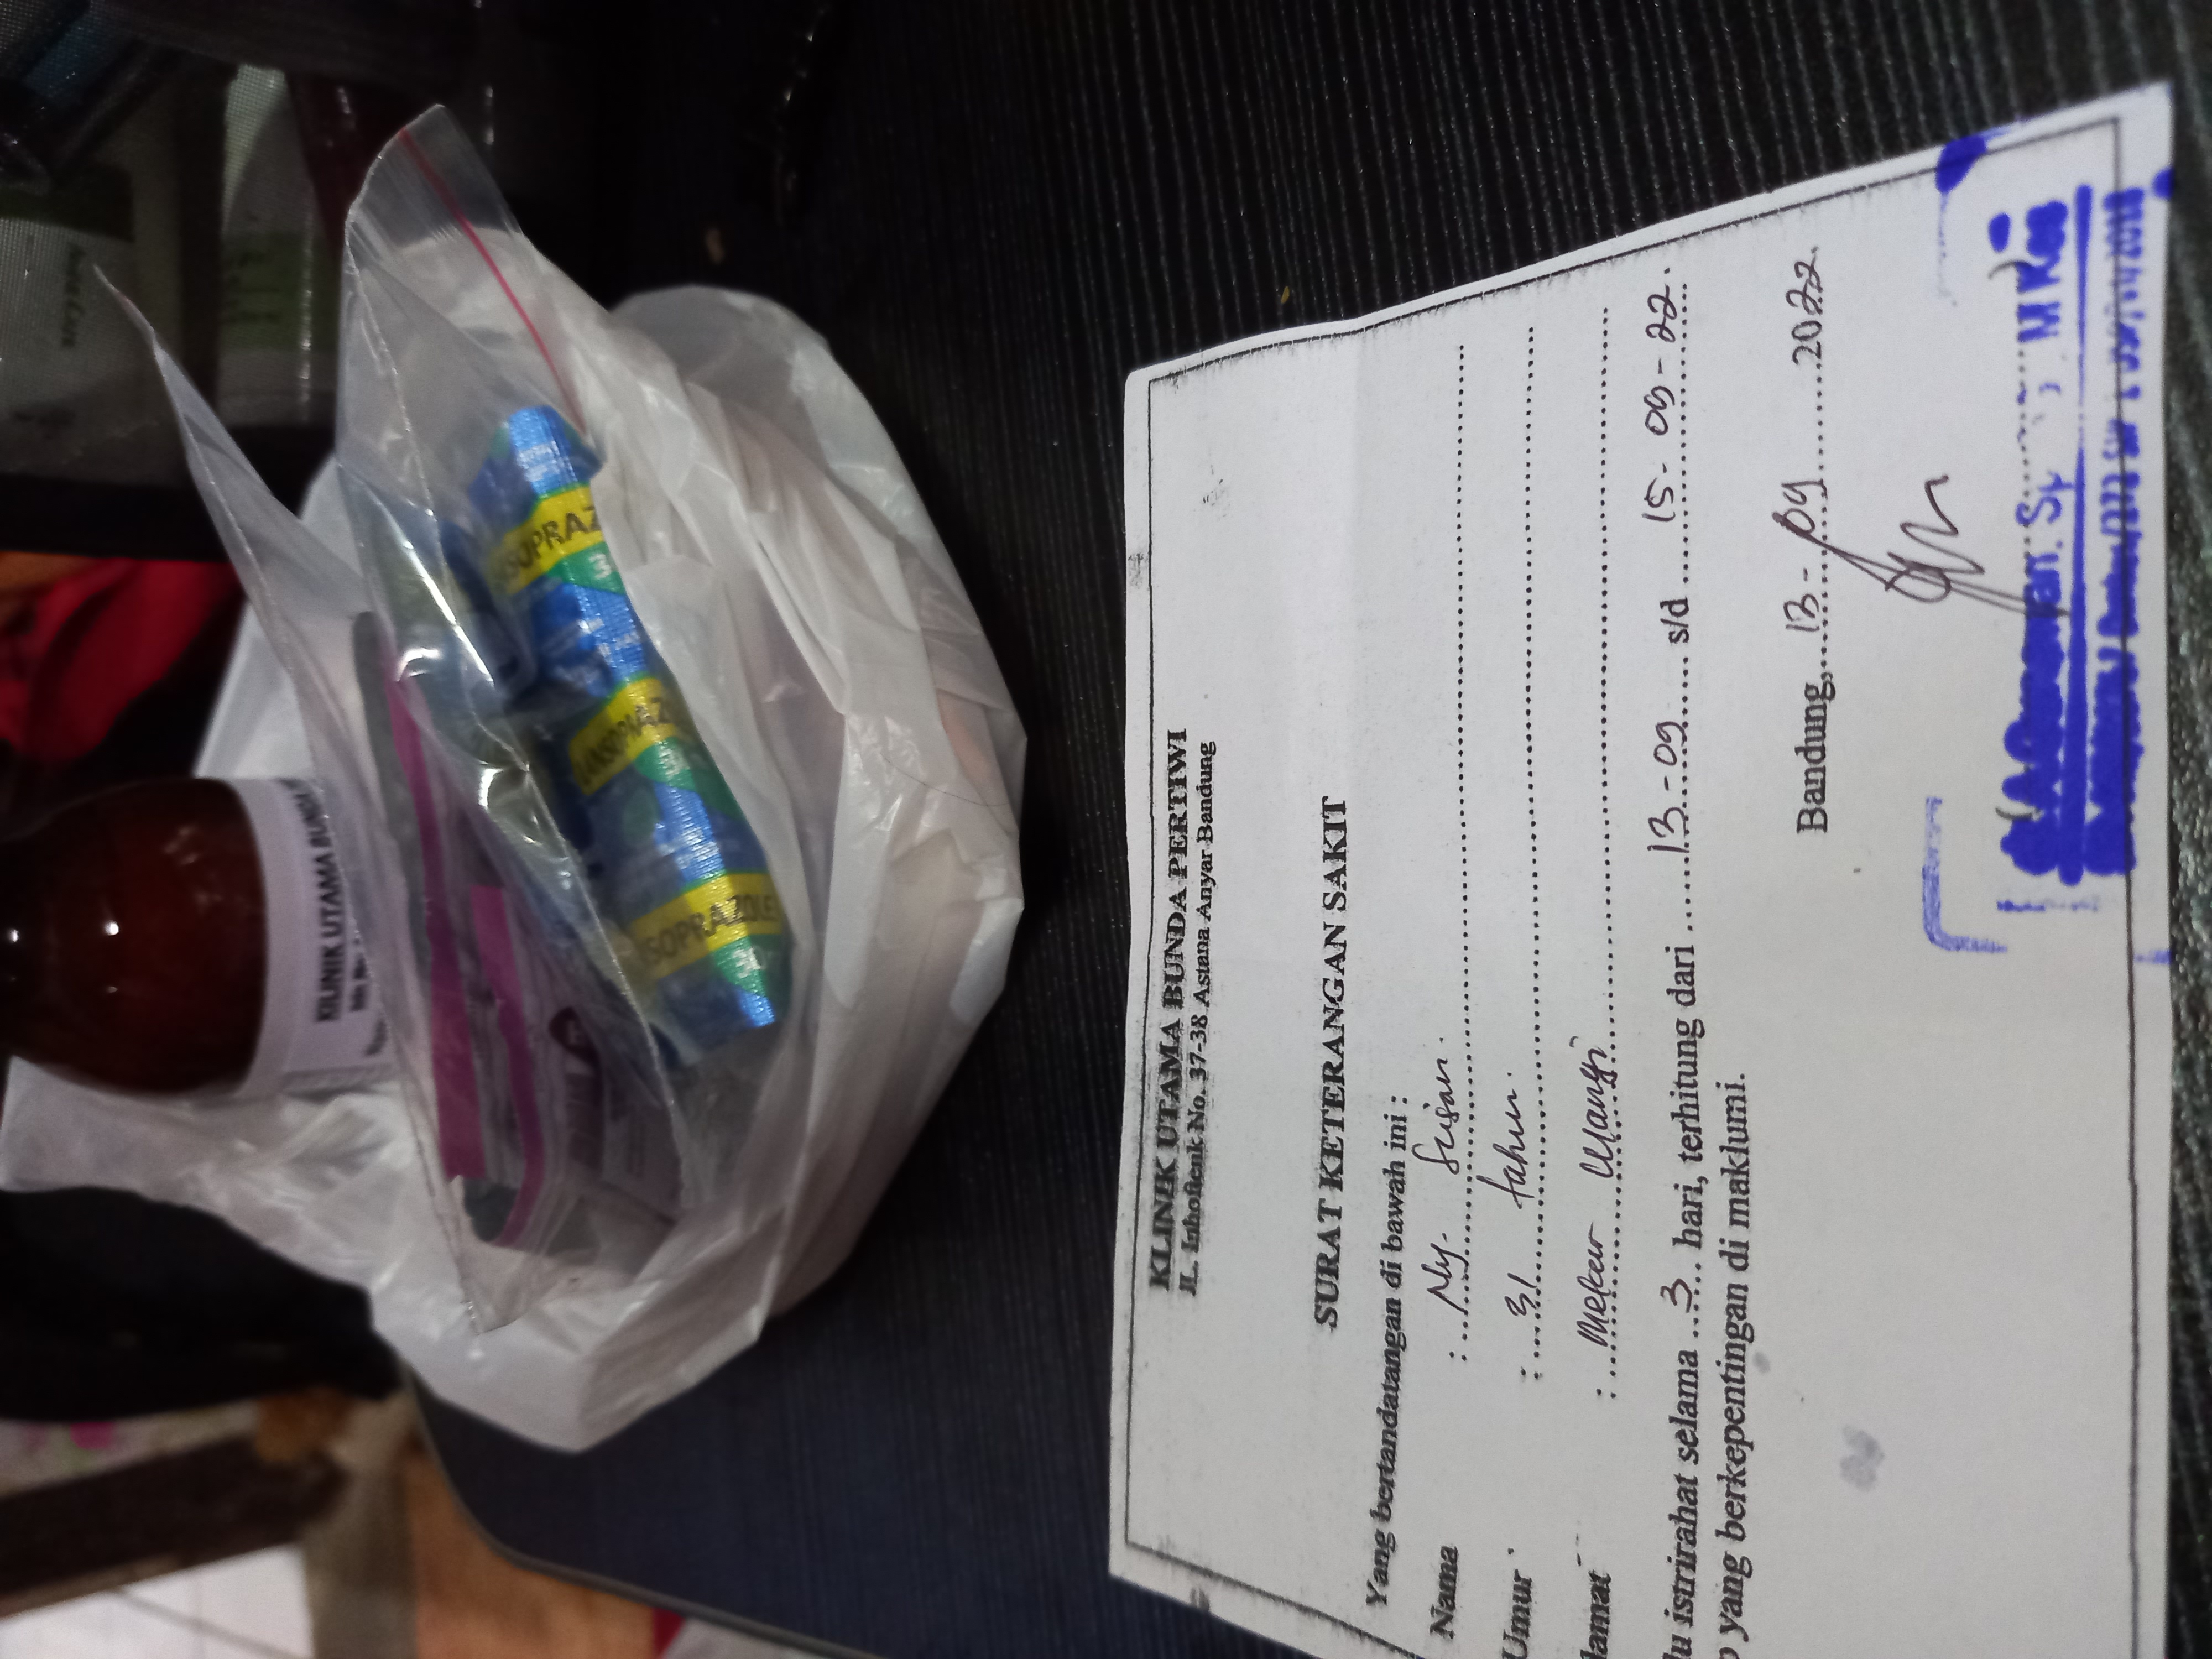 KILINIK UTAMA BUNDA
LANSOPRAZ
SOPRAZ
SOPRAZOLE
KLINIK UTAMA BUNDA PERTIWI
JL. Inhoftenk No. 37-38 Astana Anyar Bandung
SURAT KETERANGAN SAKIT
Yang bertandatangan di bawah ini :
Nama : Ny. Susan.
Umur : 31 tahun.
lamat : Mekar Wangi
lu istrirahat selama 3 hari, terhitung dari 13-09 s/d 15-09-22.
yang berkepentingan di maklumi.
Bandung, 13-09 2022.
Gunawan. Sp M Kes